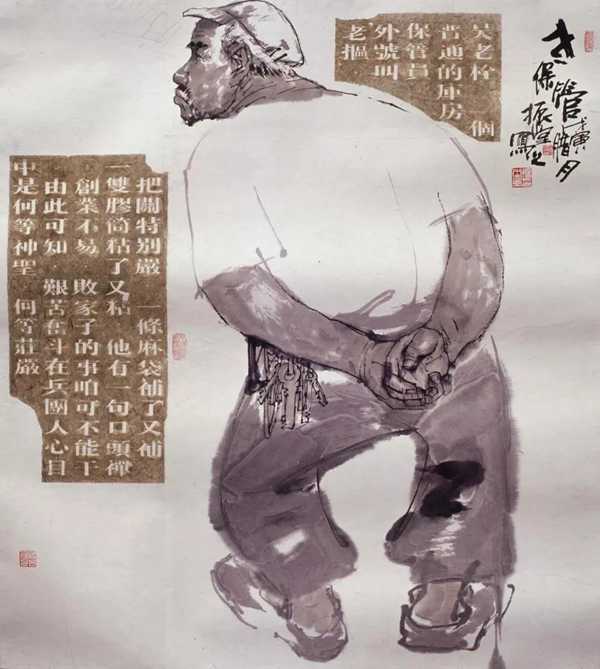 老保管
戊寅腊月
振堂寫之
吴老栓 一個
普通的庫房
保管員
外號叫
老摳
把關特別嚴 一條麻袋補了又補
一雙膠筒粘了又粘 他有一句口頭禪
創業不易 敗家子的事咱可不能干
由此可知 艱苦奮斗在兵團人心目
中是何等神聖 何等莊嚴